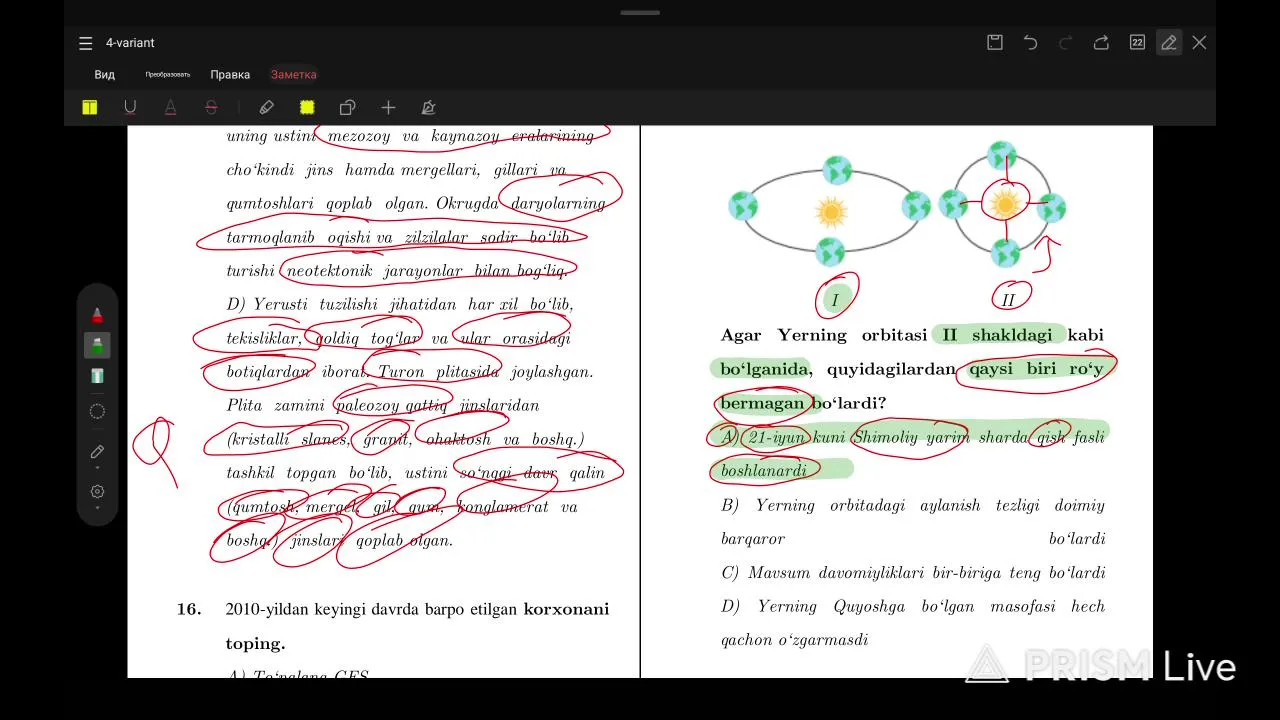 4-variant
22
Вид
Преобразовать
Правка
Заметка
uning ustini mezozoy va kaynazoy eralarining
cho‘kindi jins hamda mergellari, gillari va
qumtoshlari qoplab olgan. Okrugda daryolarning
tarmoqlanib oqishi va zilzilalar sodir bo‘lib
turishi neotektonik jarayonlar bilan bog‘liq.
D) Yerusti tuzilishi jihatidan har xil bo‘lib,
tekisliklar, qoldiq tog‘lar va ular orasidagi
botiqlardan iborat. Turon plitasida joylashgan.
Plita zamini paleozoy qattiq jinslaridan
(kristalli slanes, granit, ohaktosh va boshq.)
tashkil topgan bo‘lib, ustini so‘nggi davr qalin
(qumtosh, mergel, gil, qum, konglomerat va
boshq.) jinslari qoplab olgan.
16. 2010-yildan keyingi davrda barpo etilgan korxonani
toping.
A) To‘palang GES
I
II
Agar Yerning orbitasi II shakldagi kabi
bo‘lganida, quyidagilardan qaysi biri ro‘y
bermagan bo‘lardi?
A) 21-iyun kuni Shimoliy yarim sharda qish fasli
boshlanardi
B) Yerning orbitadagi aylanish tezligi doimiy
barqaror bo‘lardi
C) Mavsum davomiyliklari bir-biriga teng bo‘lardi
D) Yerning Quyoshga bo‘lgan masofasi hech
qachon o‘zgarmasdi
PRISM Live